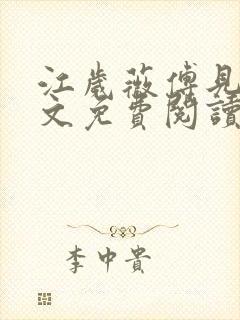 江歲薇傅見
文免費閱讀
李中貴